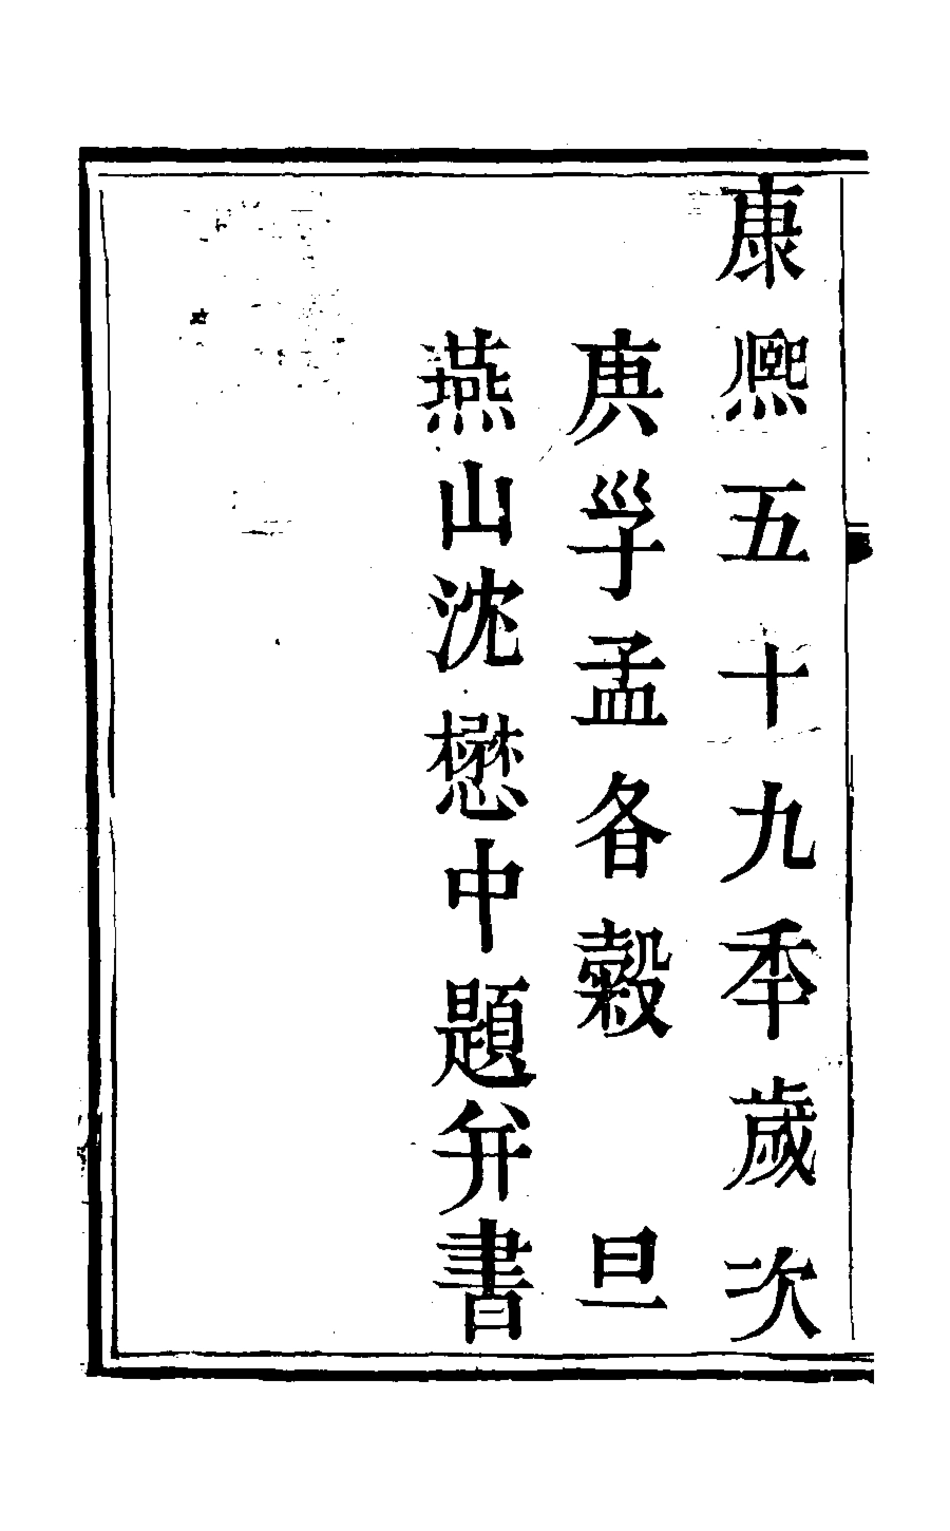 康熙五十九秊歲次
庚㜽孟𣅈穀旦
燕山沈懋中題并書